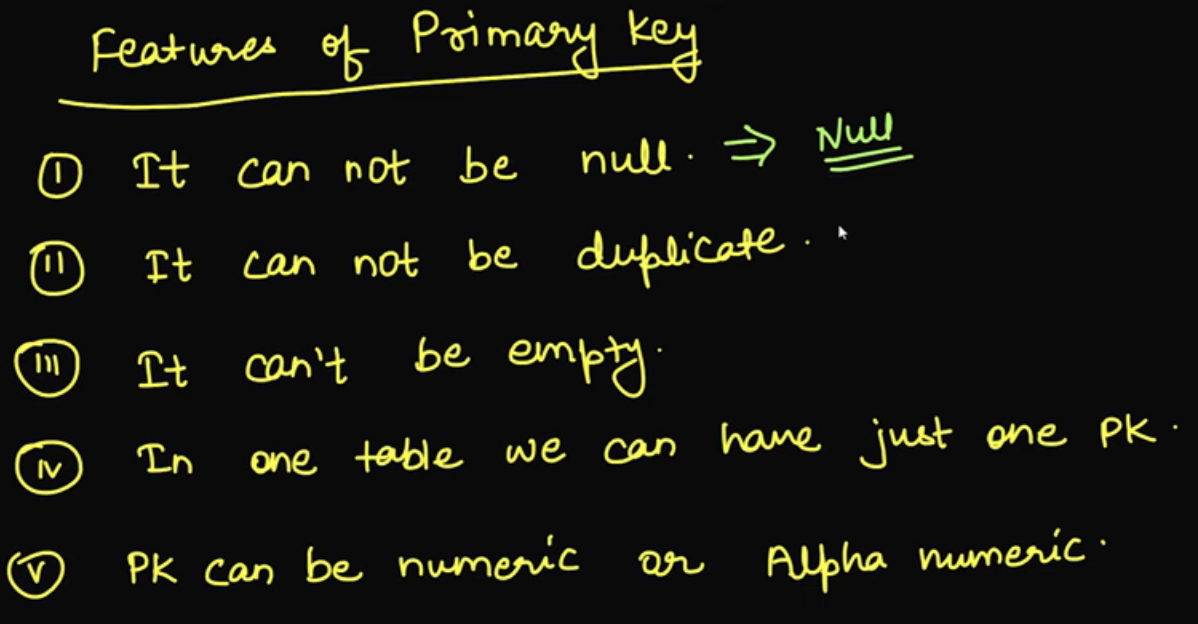 Features of Primary key
I It can not be null. ⇒ Null
II It can not be duplicate.
III It can't be empty.
IV In one table we can have just one PK.
V PK can be numeric or Alpha numeric.